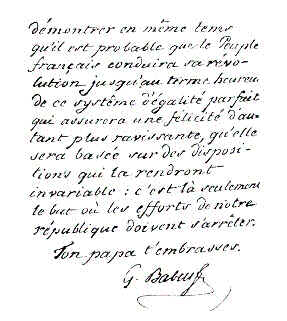 démontrer en même tems
qu'il est probable que le Peuple
français conduira sa révo-
lution jusqu'au terme heureux
de ce système d'égalité parfait
qui assurera une félicité d'au-
tant plus ravissante, qu'elle
sera basée sur des disposi-
tions qui la rendront
invariable : c'est là seulement
le but où les efforts de notre
république doivent s'arrêter.
Ton papa t'embrasses.
G. Babeuf